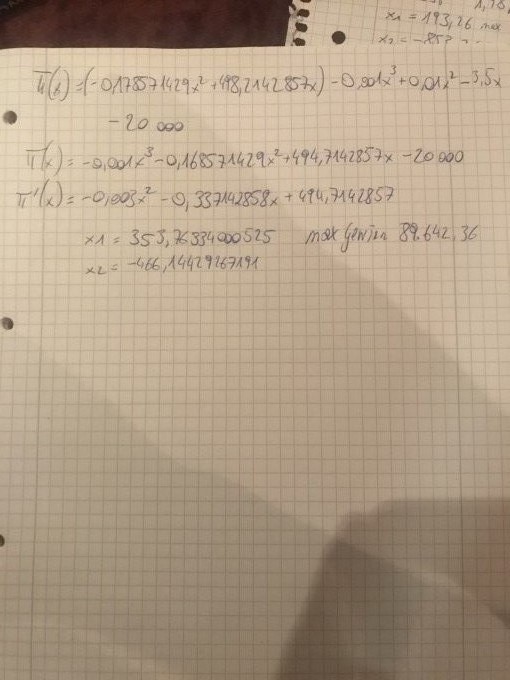 1,78
x1 = 193,26 max
x2 = -852
π(x) = (-0,178571429x² + 498,2142857x) - 0,001x³ + 0,01x² - 3,5x
- 20 000
π(x) = -0,001x³ - 0,168571429x² + 494,7142857x - 20000
π'(x) = -0,003x² - 0,337142858x + 494,7142857
x1 = 353,76334000525 max Gewinn 89.642,36
x2 = -466,14429267191